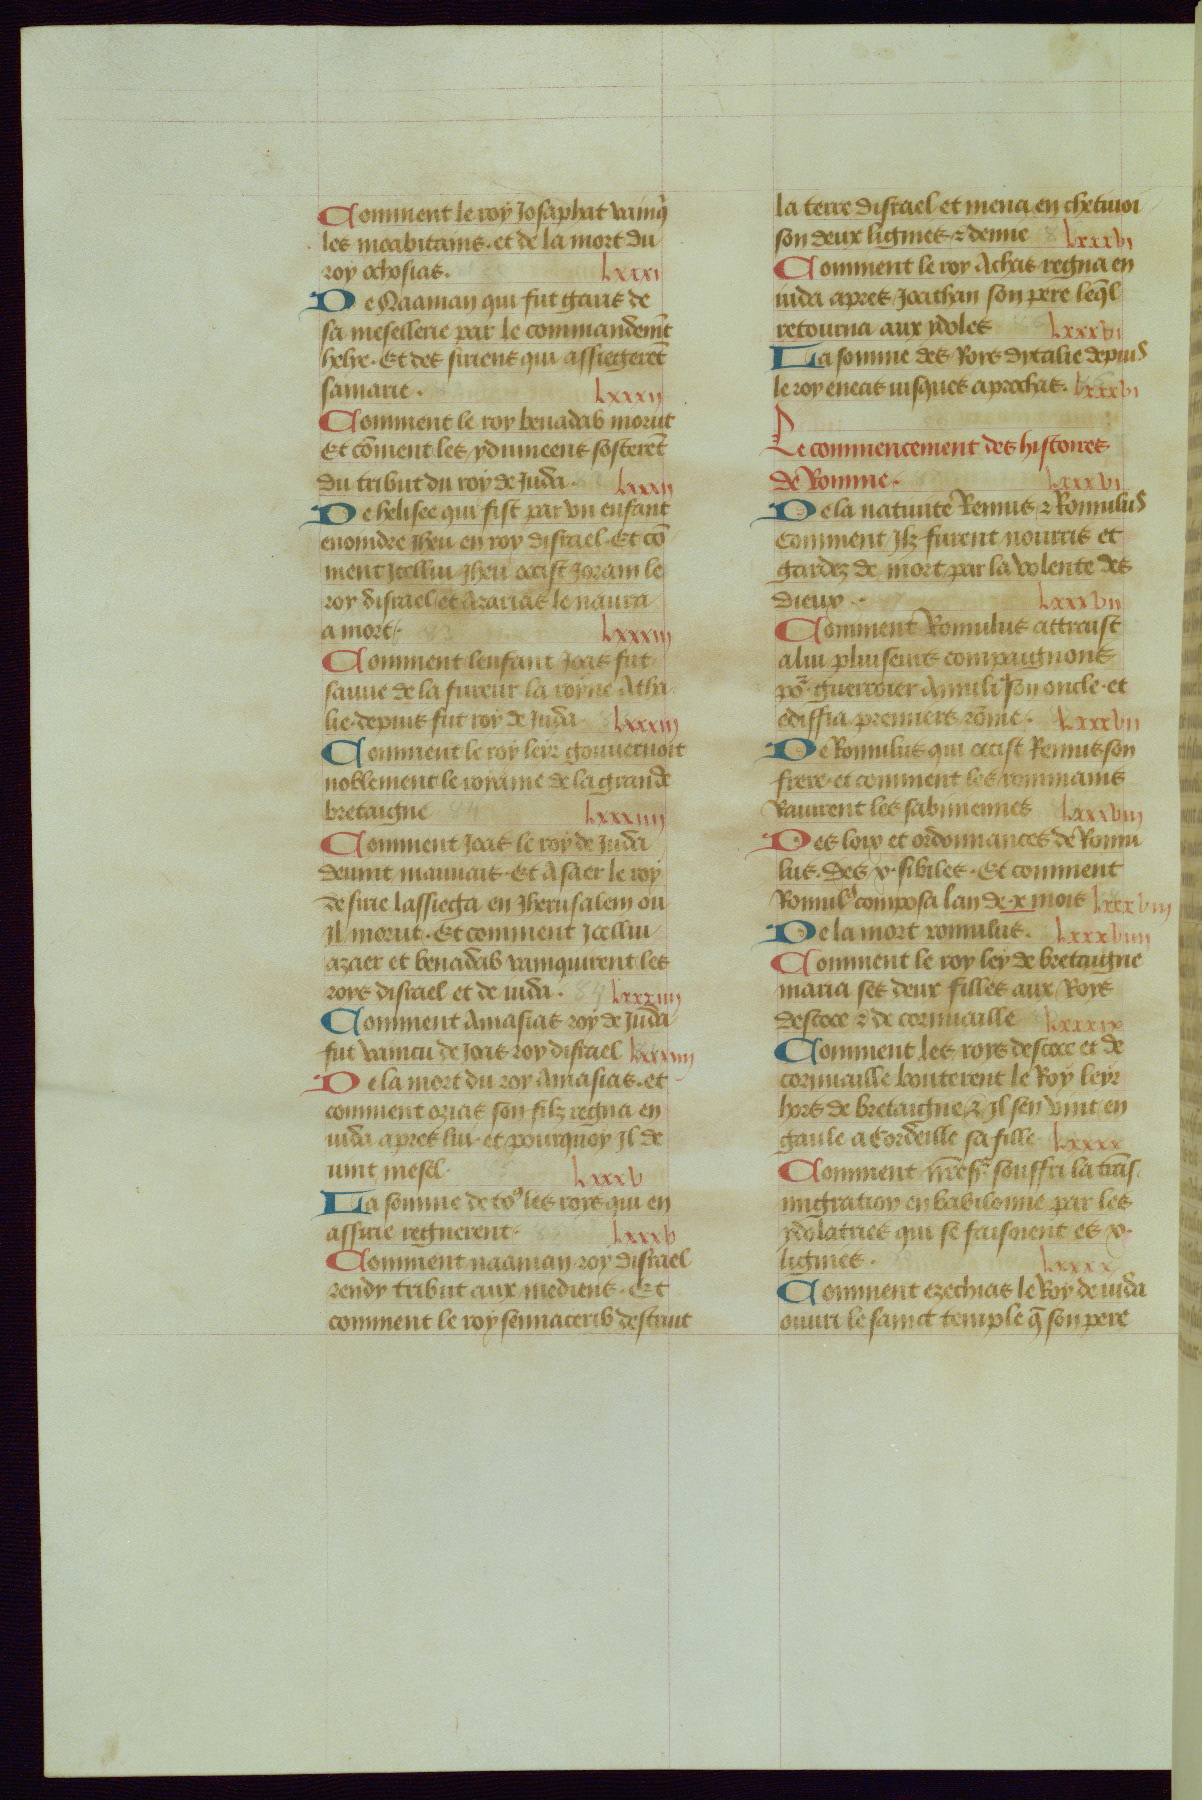 Comment le roy Josaphat vainq̄
les moabitains. et de la mort du
roy ochosias. Lxxxi
De Naaman qui fut garis de
sa mesellerie par le commandem̄t
helye. Et des siriens qui assiegerēt
samarie. Lxxxii
Comment le roy benadab morut
Et cōment les ydumeens sosterēt
du tribut du roy de Juda. Lxxxii
De helisee qui fist par vn enfant
enoindre Jheu en roy disrael. Et cō
ment Jcellui Jheu occist Joram le
roy disrael et Azarias le naura
a mort. Lxxxiii
Comment lenfant Joas fut
sauue de la fureur la royne Atha
lie. depuis fut roy de Juda Lxxxiii
Comment le roy leyr gouuernoit
noblement le royame de la grande
bretaigne Lxxxiiii
Comment Joas le roy de Juda
deuint mauuais. Et Asaer le roy
de sirie lassiega en Jherusalem ou
Jl morut. Et comment Jcellui
azaer et benadab vainquirent les
roys disrael et de iuda. 84 Lxxxiiii
Comment Amasias roy de Juda
fut vaincu de Joas roy disrael Lxxxiiii
De la mort du roy Amasias. et
comment ozias son filz regna en
iuda apres lui. et pourquoy Jl de
uint mesel. Lxxxv
La somme de to9 les roys qui en
assirie regnerent. Lxxxv
Comment naaman roy disrael
rendy tribut aux mediens. Et
comment le roy sennacerib destruit
la terre disrael et mena en chetiuoi
son deux lignies & demie Lxxxvi
Comment le roy Achas regna en
iuda apres Joathan son pere leq̄l
retourna aux ydoles Lxxxvi
La somme des Roys dytalie depuis
le roy eneas iusques a prochas. Lxxxvi
Le commencement des histoires
de Romme. Lxxxvi
De la natiuite Remus & Romulus
Comment Jlz furent nourris et
gardez de mort par la volente des
dieux. Lxxxvii
Comment Romulus attraist
a lui pluiseurs compaignons
po2 guerroier Amuli9 son oncle. et
ediffia premiers rōme. Lxxxvii
De Romulus qui occist Remus son
frere. et comment les rommains
rauirent les sabiniennes Lxxxviii
Des loix et ordonnances de Romu
lus. Des x. sibiles. Et comment
Romul9 composa lan de .x. mois Lxxxviii
De la mort romulus. Lxxxviiii
Comment le roy ley de bretaigne
maria ses deux filles aux Roys
descoce & de cornuaille Lxxxix
Comment les roys descoce et de
cornuaille bouterent le Roy leyr
hors de bretaigne, & Jl sen vint en
gaule a Cordeille sa fille Lxxxx
Comment souffri la trās.
migration en babilonne par les
ydolatries qui se faisoient es x.
lignies. Lxxxx
Comment ezechias le Roy de iuda
ouuri le sainct temple q̄ son pere